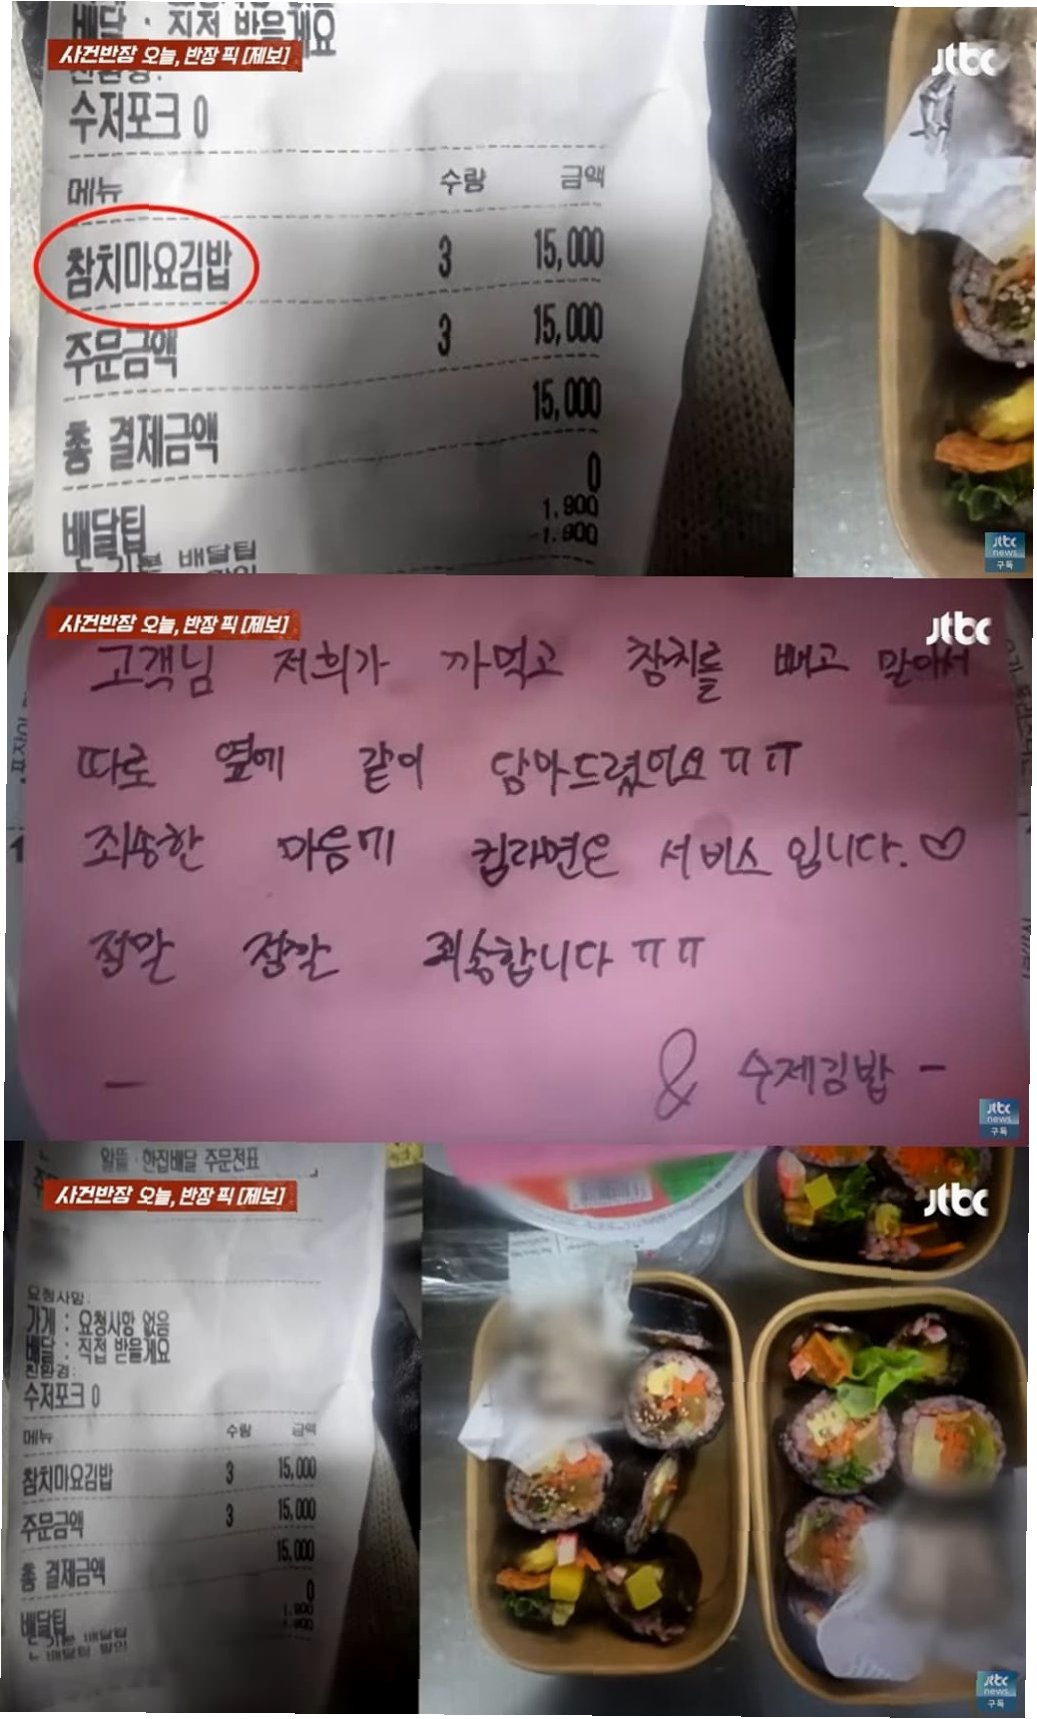 배달 : 직접 받을게요
사건반장 오늘, 반장 픽 [제보]
jtbc
친환경:
수저포크 0
메뉴 수량 금액
참치마요김밥 3 15,000
주문금액 3 15,000
총 결제금액 15,000
배달팁 0
기본 배달팁 1,900
할인 -1,900
jtbc
news
구독
사건반장 오늘, 반장 픽 [제보]
jtbc
고객님 저희가 까먹고 참치를 빼고 말아서
따로 옆에 같이 담아드렸어요ㅠㅠ
죄송한 마음에 컵라면은 서비스 입니다.♡
정말 정말 죄송합니다ㅠㅠ
& 수제김밥 -
jtbc
news
구독
알뜰·한집배달 주문전표
사건반장 오늘, 반장 픽 [제보]
jtbc
요청사항:
가게 : 요청사항 없음
배달 : 직접 받을게요
친환경:
수저포크 0
메뉴 수량 금액
참치마요김밥 3 15,000
주문금액 3 15,000
총 결제금액 15,000
배달팁 0
기본 배달팁 1,900
배달팁 할인 -1,900
jtbc
news
구독